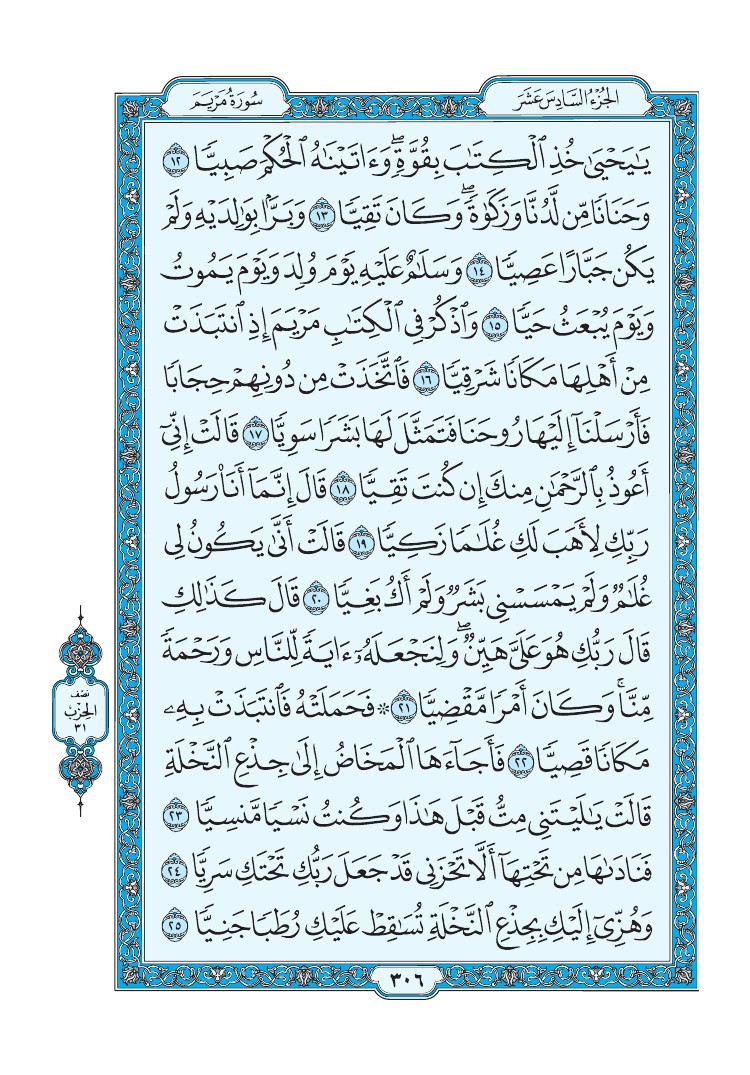 الجزء السادس عشر
سورة مريم
يَـٰيَحۡيَىٰ خُذِ ٱلۡكِتَـٰبَ بِقُوَّةٖۖ وَءَاتَيۡنَـٰهُ ٱلۡحُكۡمَ صَبِيّٗا ١٢
وَحَنَانٗا مِّن لَّدُنَّا وَزَكَوٰةٗۖ وَكَانَ تَقِيّٗا ١٣ وَبَرَّۢا بِوَٰلِدَيۡهِ وَلَمۡ
يَكُن جَبَّارًا عَصِيّٗا ١٤ وَسَلَـٰمٌ عَلَيۡهِ يَوۡمَ وُلِدَ وَيَوۡمَ يَمُوتُ
وَيَوۡمَ يُبۡعَثُ حَيّٗا ١٥ وَٱذۡكُرۡ فِي ٱلۡكِتَـٰبِ مَرۡيَمَ إِذِ ٱنتَبَذَتۡ
مِنۡ أَهۡلِهَا مَكَانٗا شَرۡقِيّٗا ١٦ فَٱتَّخَذَتۡ مِن دُونِهِمۡ حِجَابٗا
فَأَرۡسَلۡنَآ إِلَيۡهَا رُوحَنَا فَتَمَثَّلَ لَهَا بَشَرٗا سَوِيّٗا ١٧ قَالَتۡ إِنِّيٓ
أَعُوذُ بِٱلرَّحۡمَـٰنِ مِنكَ إِن كُنتَ تَقِيّٗا ١٨ قَالَ إِنَّمَآ أَنَا۠ رَسُولُ
رَبِّكِ لِأَهَبَ لَكِ غُلَـٰمٗا زَكِيّٗا ١٩ قَالَتۡ أَنَّىٰ يَكُونُ لِي
غُلَـٰمٞ وَلَمۡ يَمۡسَسۡنِي بَشَرٞ وَلَمۡ أَكُ بَغِيّٗا ٢٠ قَالَ كَذَٰلِكِ
قَالَ رَبُّكِ هُوَ عَلَيَّ هَيِّنٞۖ وَلِنَجۡعَلَهُۥٓ ءَايَةٗ لِّلنَّاسِ وَرَحۡمَةٗ
مِّنَّاۚ وَكَانَ أَمۡرٗا مَّقۡضِيّٗا ٢١ ۞ فَحَمَلَتۡهُ فَٱنتَبَذَتۡ بِهِۦ
مَكَانٗا قَصِيّٗا ٢٢ فَأَجَآءَهَا ٱلۡمَخَاضُ إِلَىٰ جِذۡعِ ٱلنَّخۡلَةِ
قَالَتۡ يَـٰلَيۡتَنِي مِتُّ قَبۡلَ هَـٰذَا وَكُنتُ نَسۡيٗا مَّنسِيّٗا ٢٣
فَنَادَىٰهَا مِن تَحۡتِهَآ أَلَّا تَحۡزَنِي قَدۡ جَعَلَ رَبُّكِ تَحۡتَكِ سَرِيّٗا ٢٤
وَهُزِّيٓ إِلَيۡكِ بِجِذۡعِ ٱلنَّخۡلَةِ تُسَـٰقِطۡ عَلَيۡكِ رُطَبٗا جَنِيّٗا ٢٥
نصف
الحزب
٣١
٣٠٦